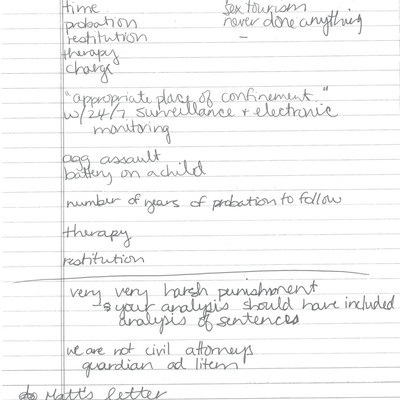 time sex tourism
probation never done anything
restitution -
therapy
charge
"appropriate place of confinement"
w/24/7 surveillance + electronic
monitoring
agg assault
battery on a child
number of years of probation to follow
therapy
restitution
very very harsh punishment
↳ your analysis should have included
analysis of sentences
we are not civil attorneys
guardian ad litem
Matt's letter